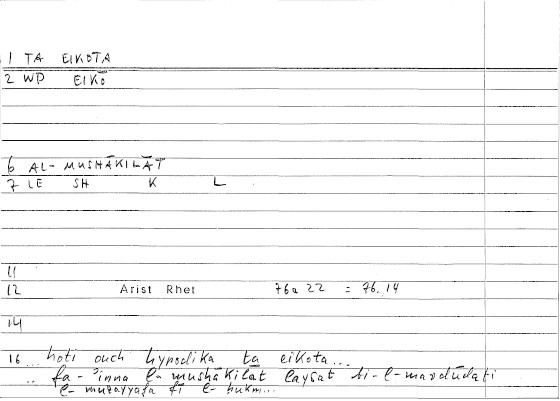 1 TA EIKOTA
2 WP EIKŌ
6 AL- MUSHĀKILĀT
7 LE SH K L
11
12 Arist Rhet 76a 22 = 76.14
14
16 ... hoti ouch hypodika ta eikota...
.. fa- 'inna l- mushākilāt laysat bi-l-mardūdati
l- muzayyafa fī l- ḥukm...